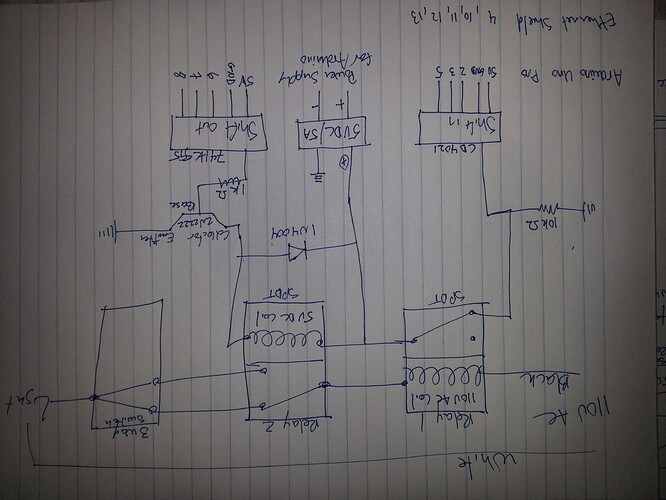 White
110V AC
Black
Relay 1
110V AC Coil
SPDT
Relay 2
5V DC Coil
SPDT
3 way
Switch
Light
10kΩ
1N4004
Collector
2N2222
Emitter
Base
1kΩ
CD4021
Shift in
5V GND 2 3 5
5VDC/5A
+ -
Power Supply
for Arduino
74HC595
Shift out
5V GND 6 7 8
Arduino Uno Pro
Ethernet Shield
4, 10, 11, 12, 13